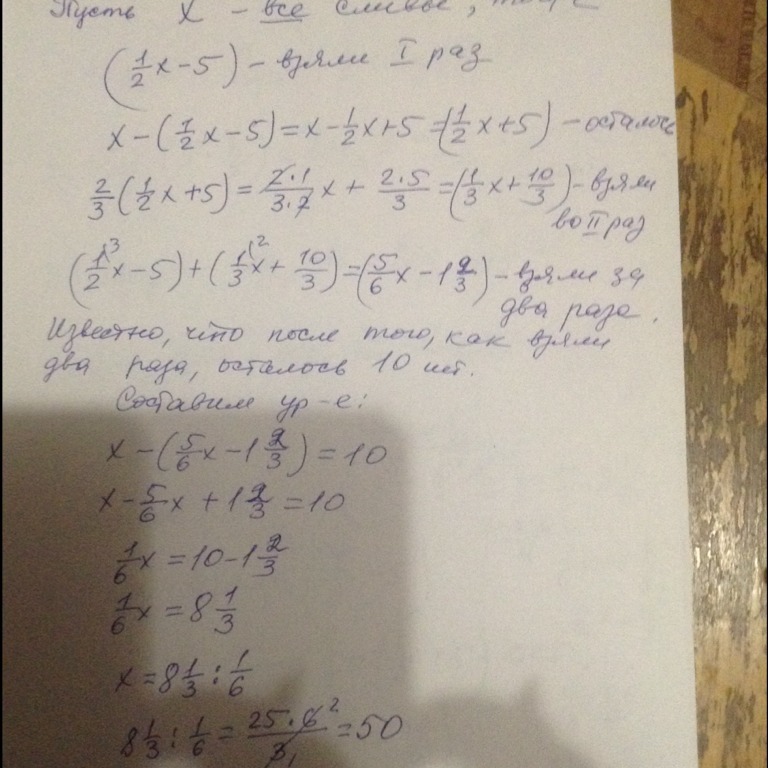 Пусть x – все сливы,
(1/2x – 5) – взяли I раз
x – (1/2x – 5) = x – 1/2x + 5 = (1/2x + 5) – осталось
2/3(1/2x + 5) = 2·1/3·2x + 2·5/3 = (1/3x + 10/3) – взяли
во II раз
(1/2x – 5) + (1/3x + 10/3) = (5/6x – 1 2/3) – взяли за
два раза.
Известно, что после того, как взяли
два раза, осталось 10 шт.
Составим ур-е:
x – (5/6x – 1 2/3) = 10
x – 5/6x + 1 2/3 = 10
1/6x = 10 – 1 2/3
1/6x = 8 1/3
x = 8 1/3 : 1/6
8 1/3 : 1/6 = 25·6²/3₁ = 50